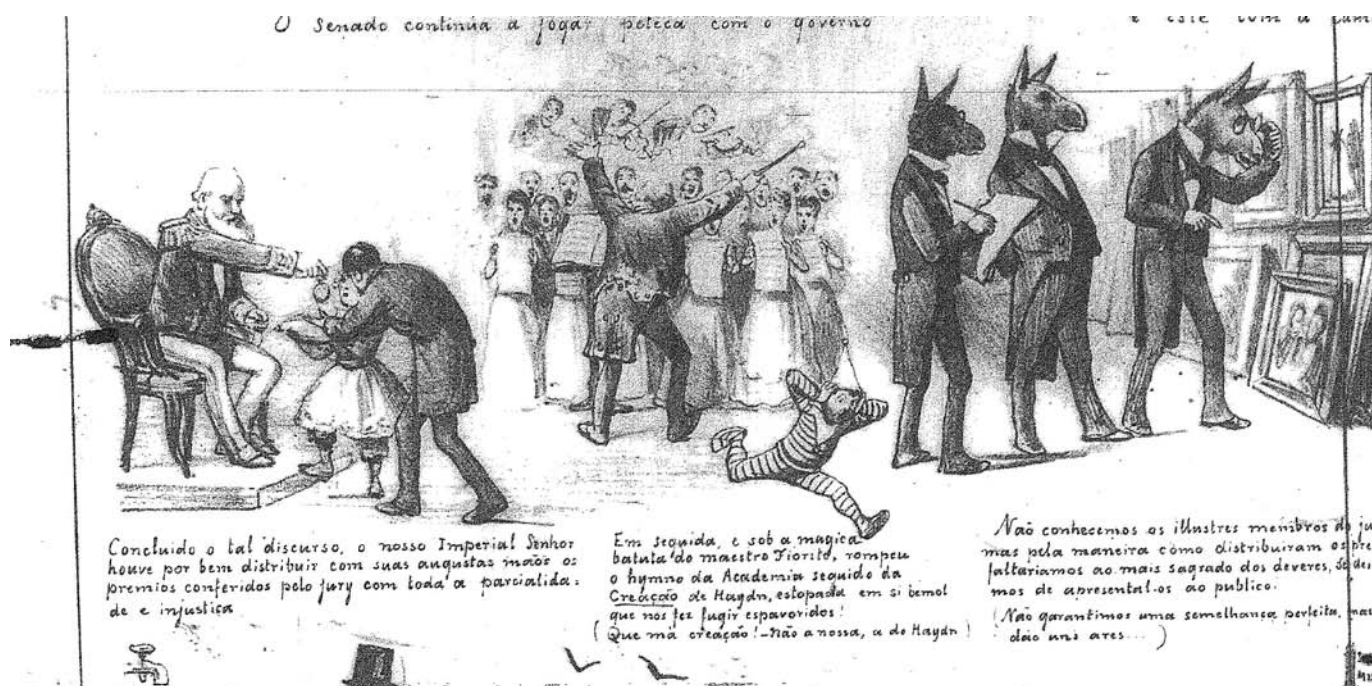 O Senado continúa a jogar peteca com o governo
e este com a
Concluido o tal discurso, o nosso Imperial Senhor
houve por bem distribuir com suas augustas mãos os
premios conferidos pelo jury com toda a parcialida=
de e injustiça
Em seguida, e sob a magica
batuta do maestro Fiorito, rompeu
o hymno da Academia seguido da
Creação de Haydn, estopada em si bemol
que nos fez fugir espavoridos!
(Que má creação! - Não a nossa, a do Haydn)
Não conhecemos os illustres membros do
mas pela maneira como distribuiram os
faltariamos ao mais sagrado dos deveres, se
mos de apresental-os ao publico.
(Não garantimos uma semelhança perfeita,
dão uns ares...)